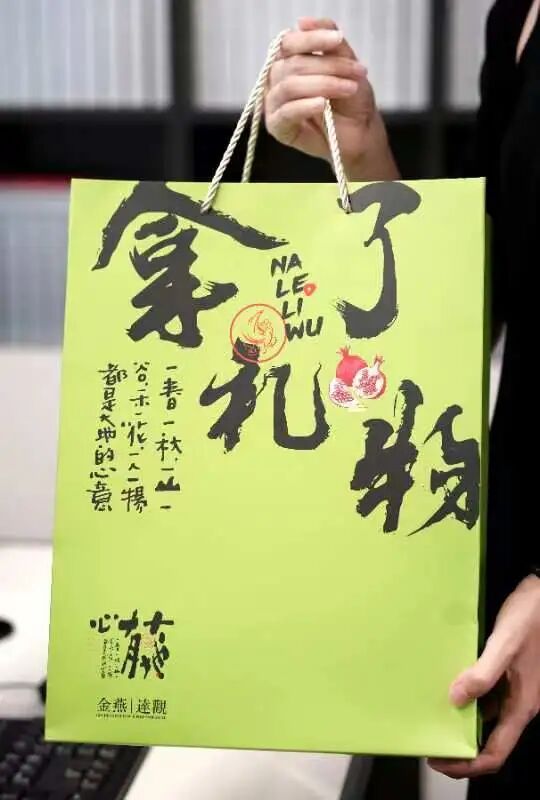 拿了
NA
LE
LI
WU
礼物
一春一秋一山一
谷一木一花一人一物
都是大地的心意
心藤
金燕|達觀